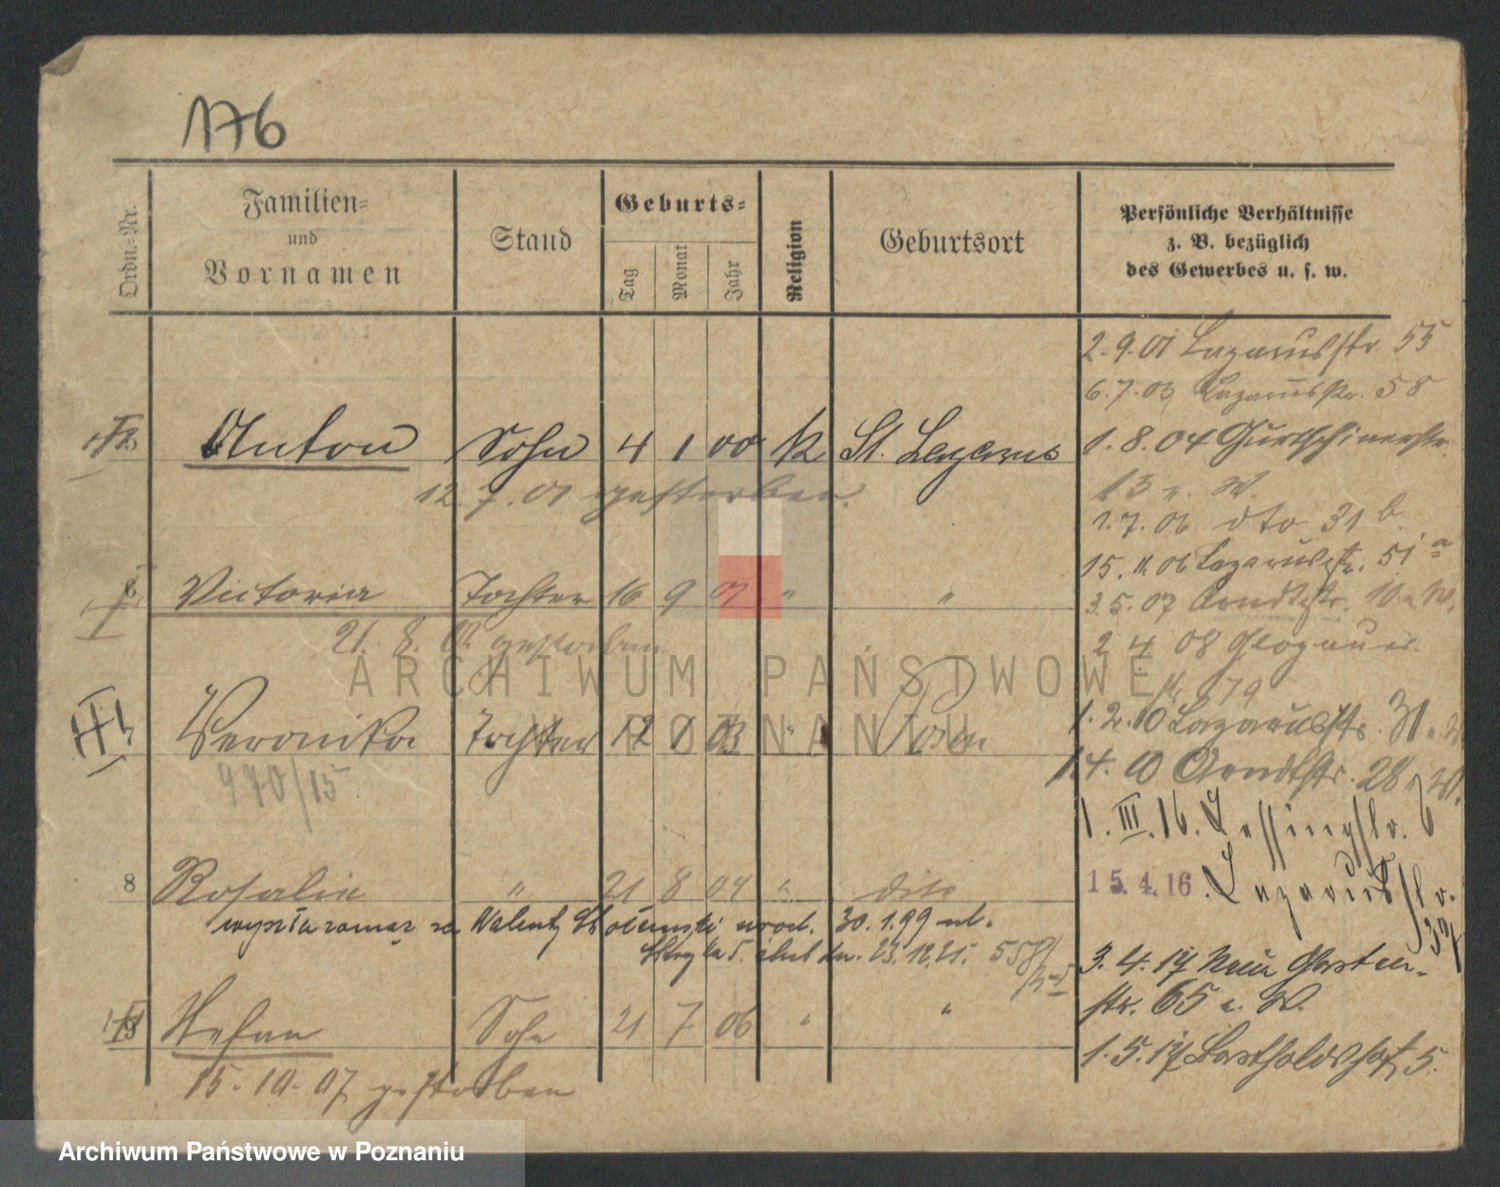 176
Ordn.-Nr.
Familien-
und
Vornamen
Stand
Geburts-
Tag
Monat
Jahr
Religion
Geburtsort
Persönliche Verhältnisse
z. B. bezüglich
des Gewerbes u. s. w.
2.9.01 Lazarusstr. 55
6.7.03 Lazarusstr. 58
Anton Sohn 4 1 00 k St. Lazarus
1.8.04 Gurtschinerstr.
12.7.01 gestorben.
13 n. W.
1.7.06 dto 31 b.
15.11.06 Lazarusstr. 51 a
Victoria Tochter 16 9 " "
3.5.07 Arndtstr. 10 n. W.
21. 8. gestorben
2 4 08 Glogauer
179
Veronika Tochter 12 1 03 " Posen
1.2.10 Lazarusstr. 31
970/15
1.4.10 Arndtstr. 28 n. W.
1. III. 16. Lessingstr. 6
8 Rosalie " 21 8 04 " dito
15.4.16 Lazarusstr.
wyszła zamąż za Walent. urodz. 30.1.99 ul.
23.12.21. 558/
3.4.17 Neue Garten-
str. 65 n. W.
Stefan Sohn 21 7 06 " "
1.5.17 Bertholdshof 5.
15.10.07 gestorben
ARCHIWUM PAŃSTWOWE
W POZNANIU
Archiwum Państwowe w Poznaniu